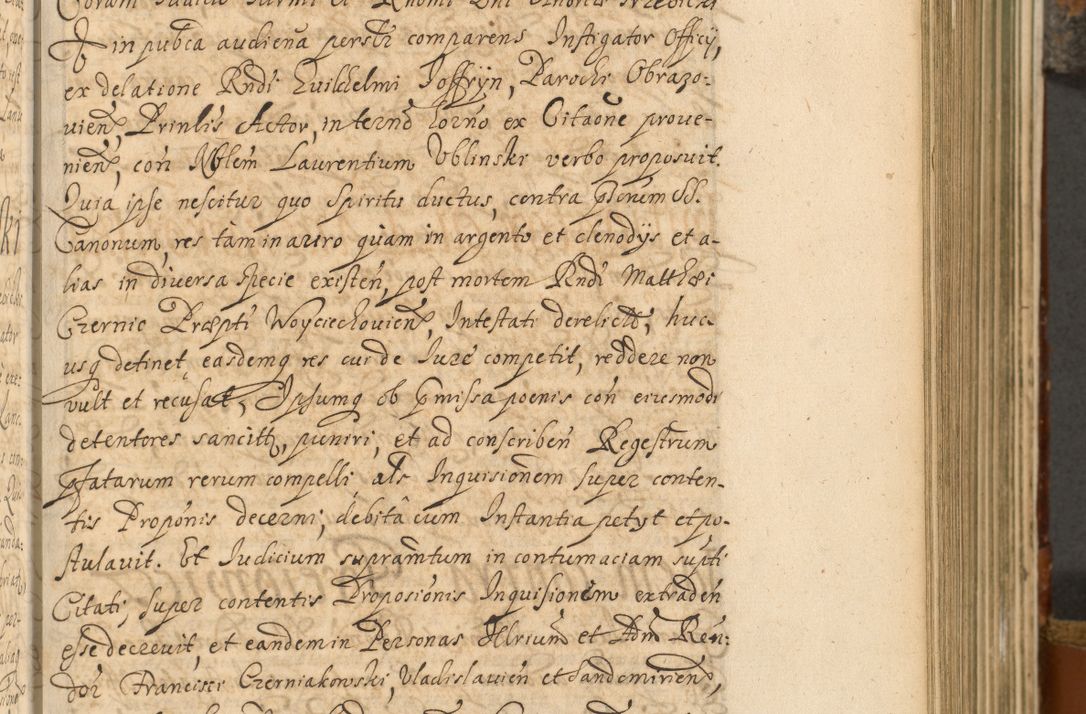 Coram Iudicio Illrmi et Rndmi Dni Andreæ Trzebicki
in pubca audiena perslr comparens Instigator Officij,
ex delatione Rndi Guilhelmi Joffryn, Parochi Obrazo-
uien, Prinlis Actor, in termo horno ex Citaone proue-
nien, con Nblem Laurentium Ublinski verbo proposuit.
Quia ipse nescitur quo Spiritu ductus, contra pscrum SS.
Canonum, res tam in auro quam in argento et clenodijs et a-
lias in diuersa specie existen, post mortem Rndi Matthæi
Czernic Præpti Woyciechouien, Intestati derelictt, huc-
usq detinet, easdemq res cui de Iure competit, reddere non
vult et recusat, Ipsumq ob pmissa poenis con eiusmodi
detentores sancitt, puniri, et ad conscriben Regestrum
pfatarum rerum compelli als Inquisionem super conten-
tis Proponis decerni, debita cum Instantia petyt et po-
stulauit. Et Iudicium supramtum in contumaciam supti
Citati, super contentis Proposionis Inquisionem extraden
esse decreuit, et eandem in Personas Illrium et Adm Reu-
dor Francisci Czerniakowski, Uladislauien et Sandomirien,